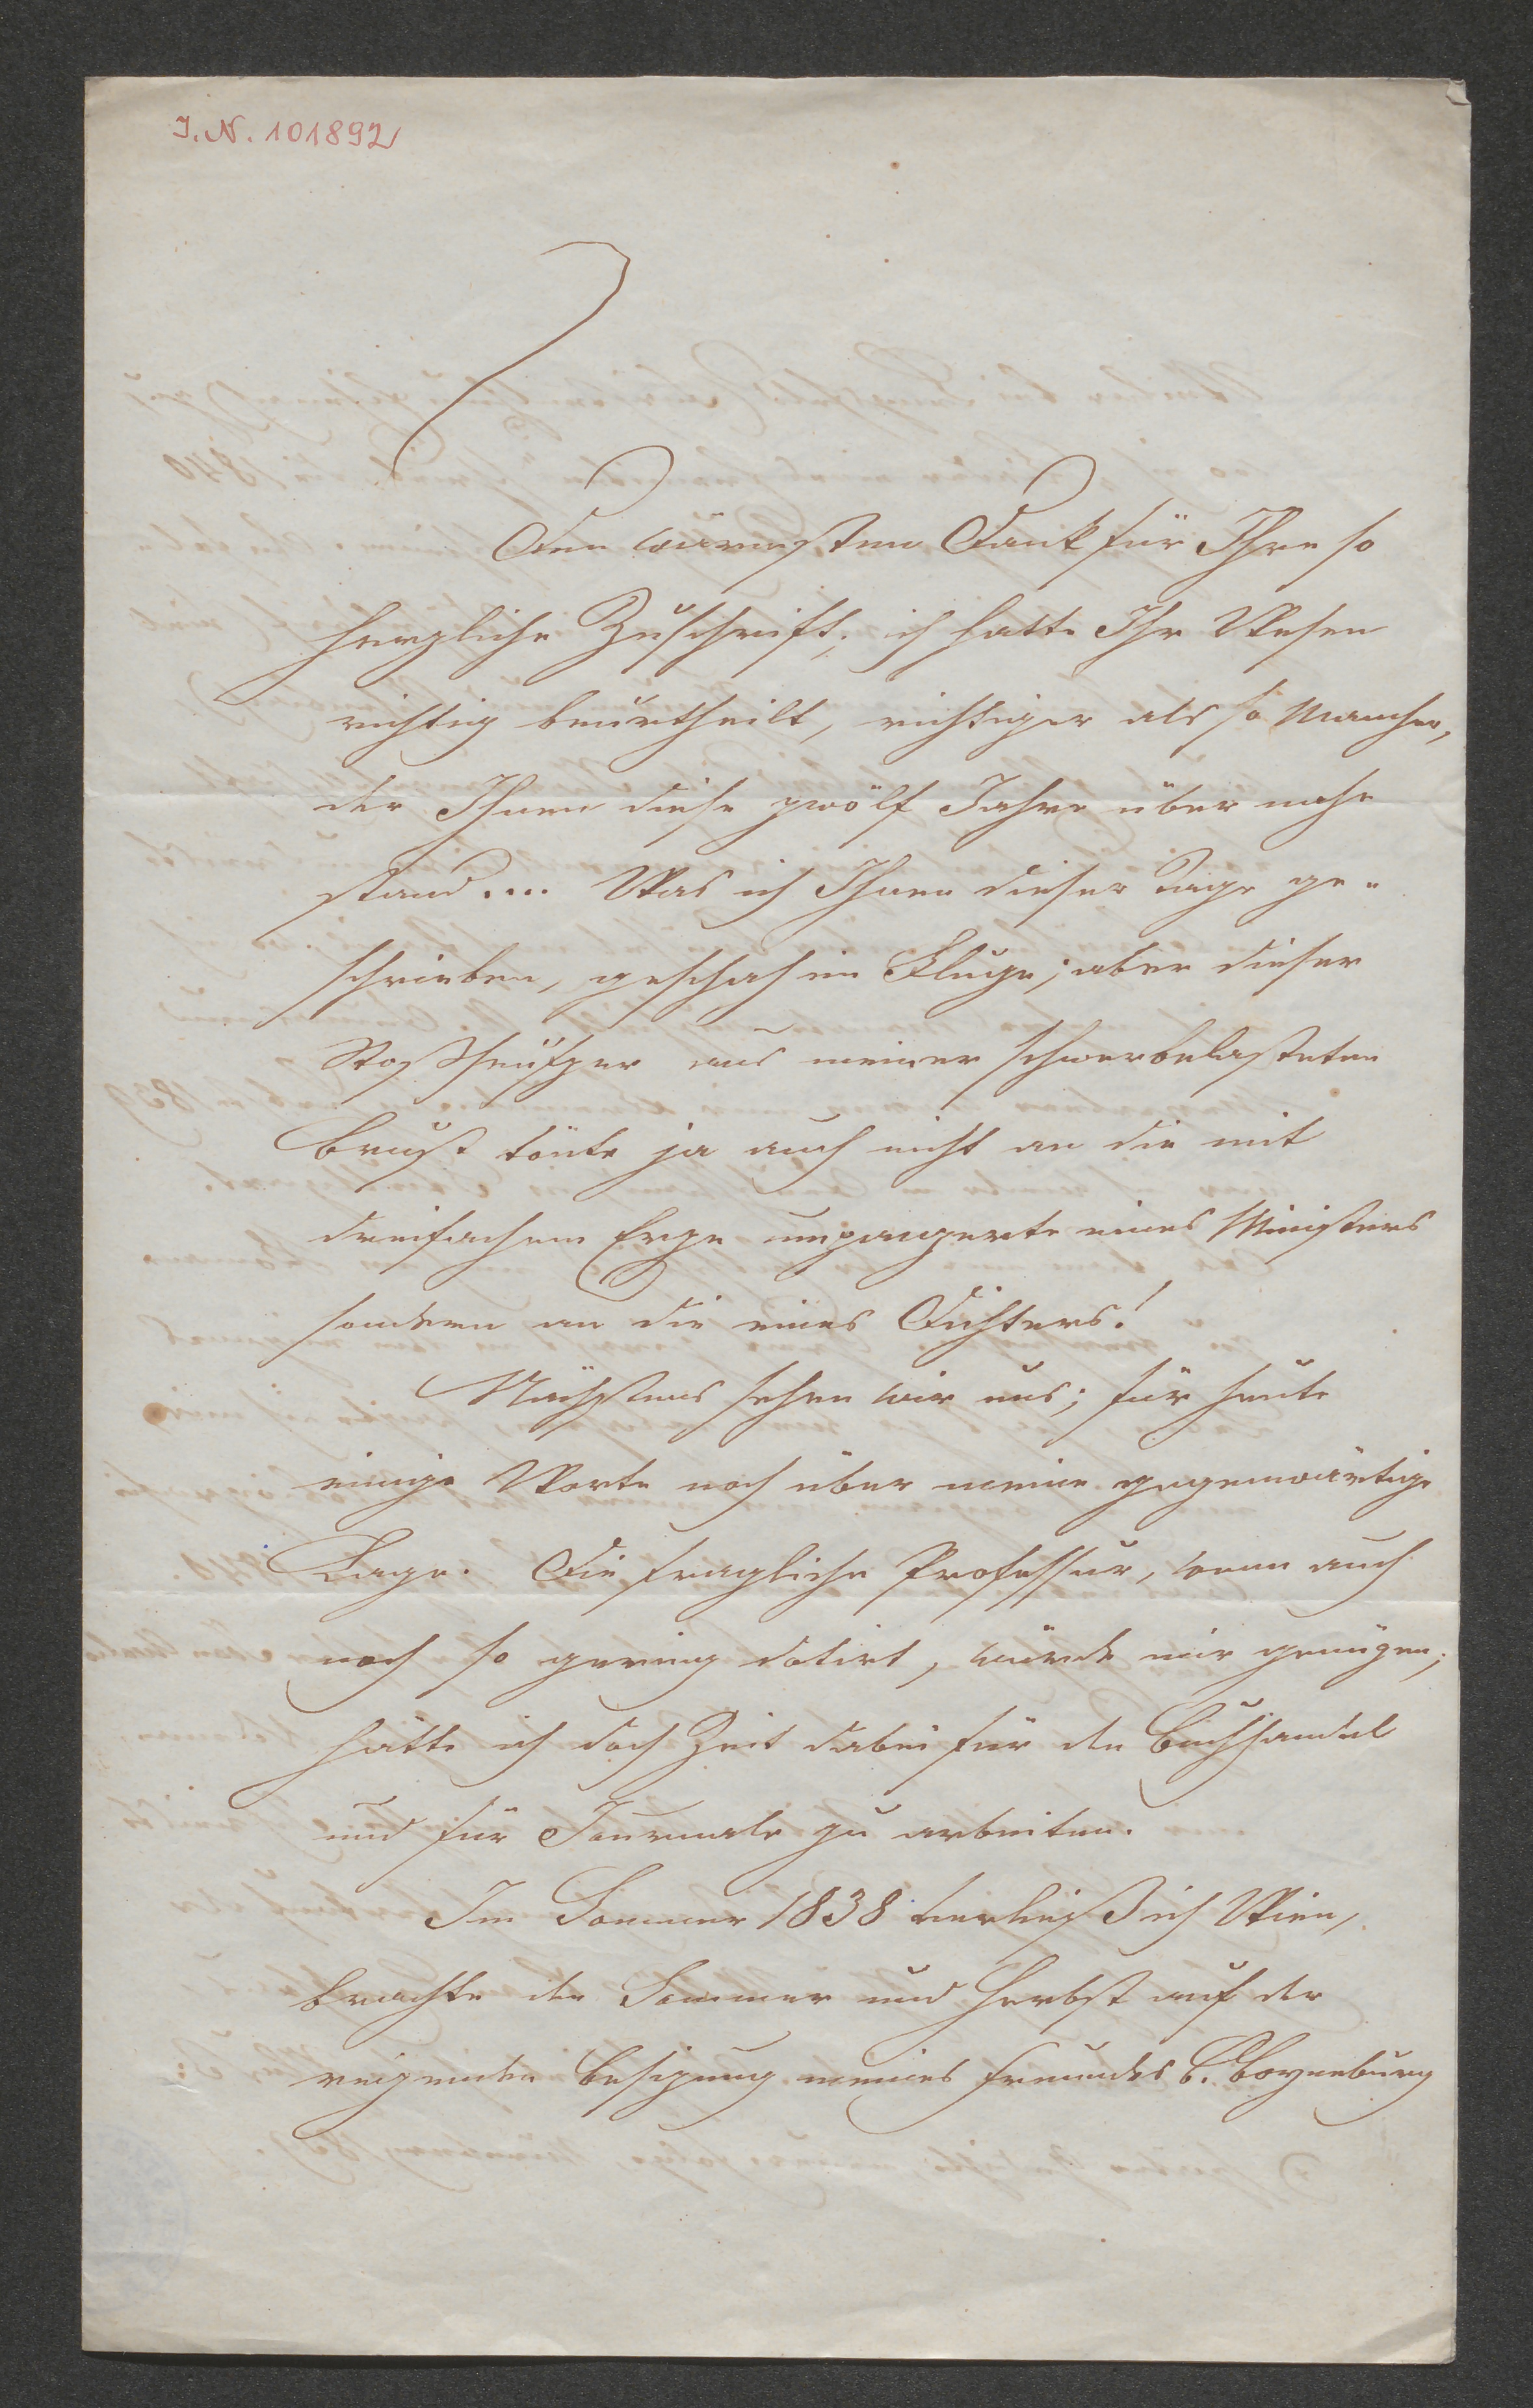 I. N. 101892
Den wärmsten Dank für Ihre so
herzliche Zuschrift; ich hatte Ihr Wesen
richtig beurtheilt, richtiger als so Mancher,
der Ihnen diese zwölf Jahre über nahe
stand.... Was ich Ihnen dieser Tage ge-
schrieben, geschah im Fluge; aber dieser
Stoßseufzer aus meiner schwerbelasteten
Brust tönte ja auch nicht an die mit
dreifachem Erze umpanzerte eines Ministers
sondern an die eines Dichters!
Nächstens sehen wir uns; für heute
einige Worte noch über meine gegenwärtige
Lage. Die fragliche Professur, wenn auch
noch so gering dotirt, würde mir genügen;
hätte ich doch Zeit dabei für den Buchhandel
und für Journale zu arbeiten.
Im Sommer 1838 verließ ich Wien,
brachte den Sommer und Herbst auf der
reizenden Besitzung meines Freundes B. Boyneburg